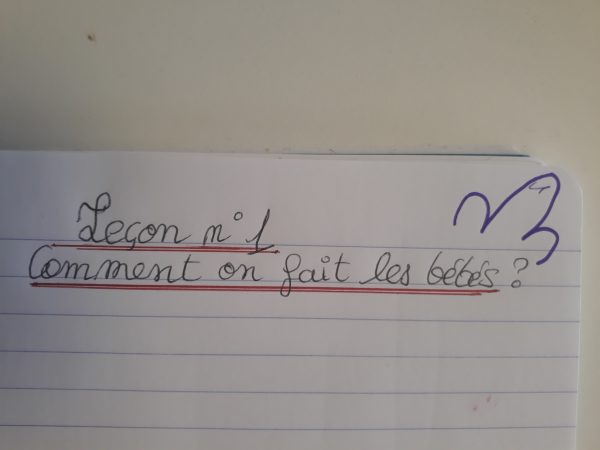 Leçon n° 1
Comment on fait les bébés ?